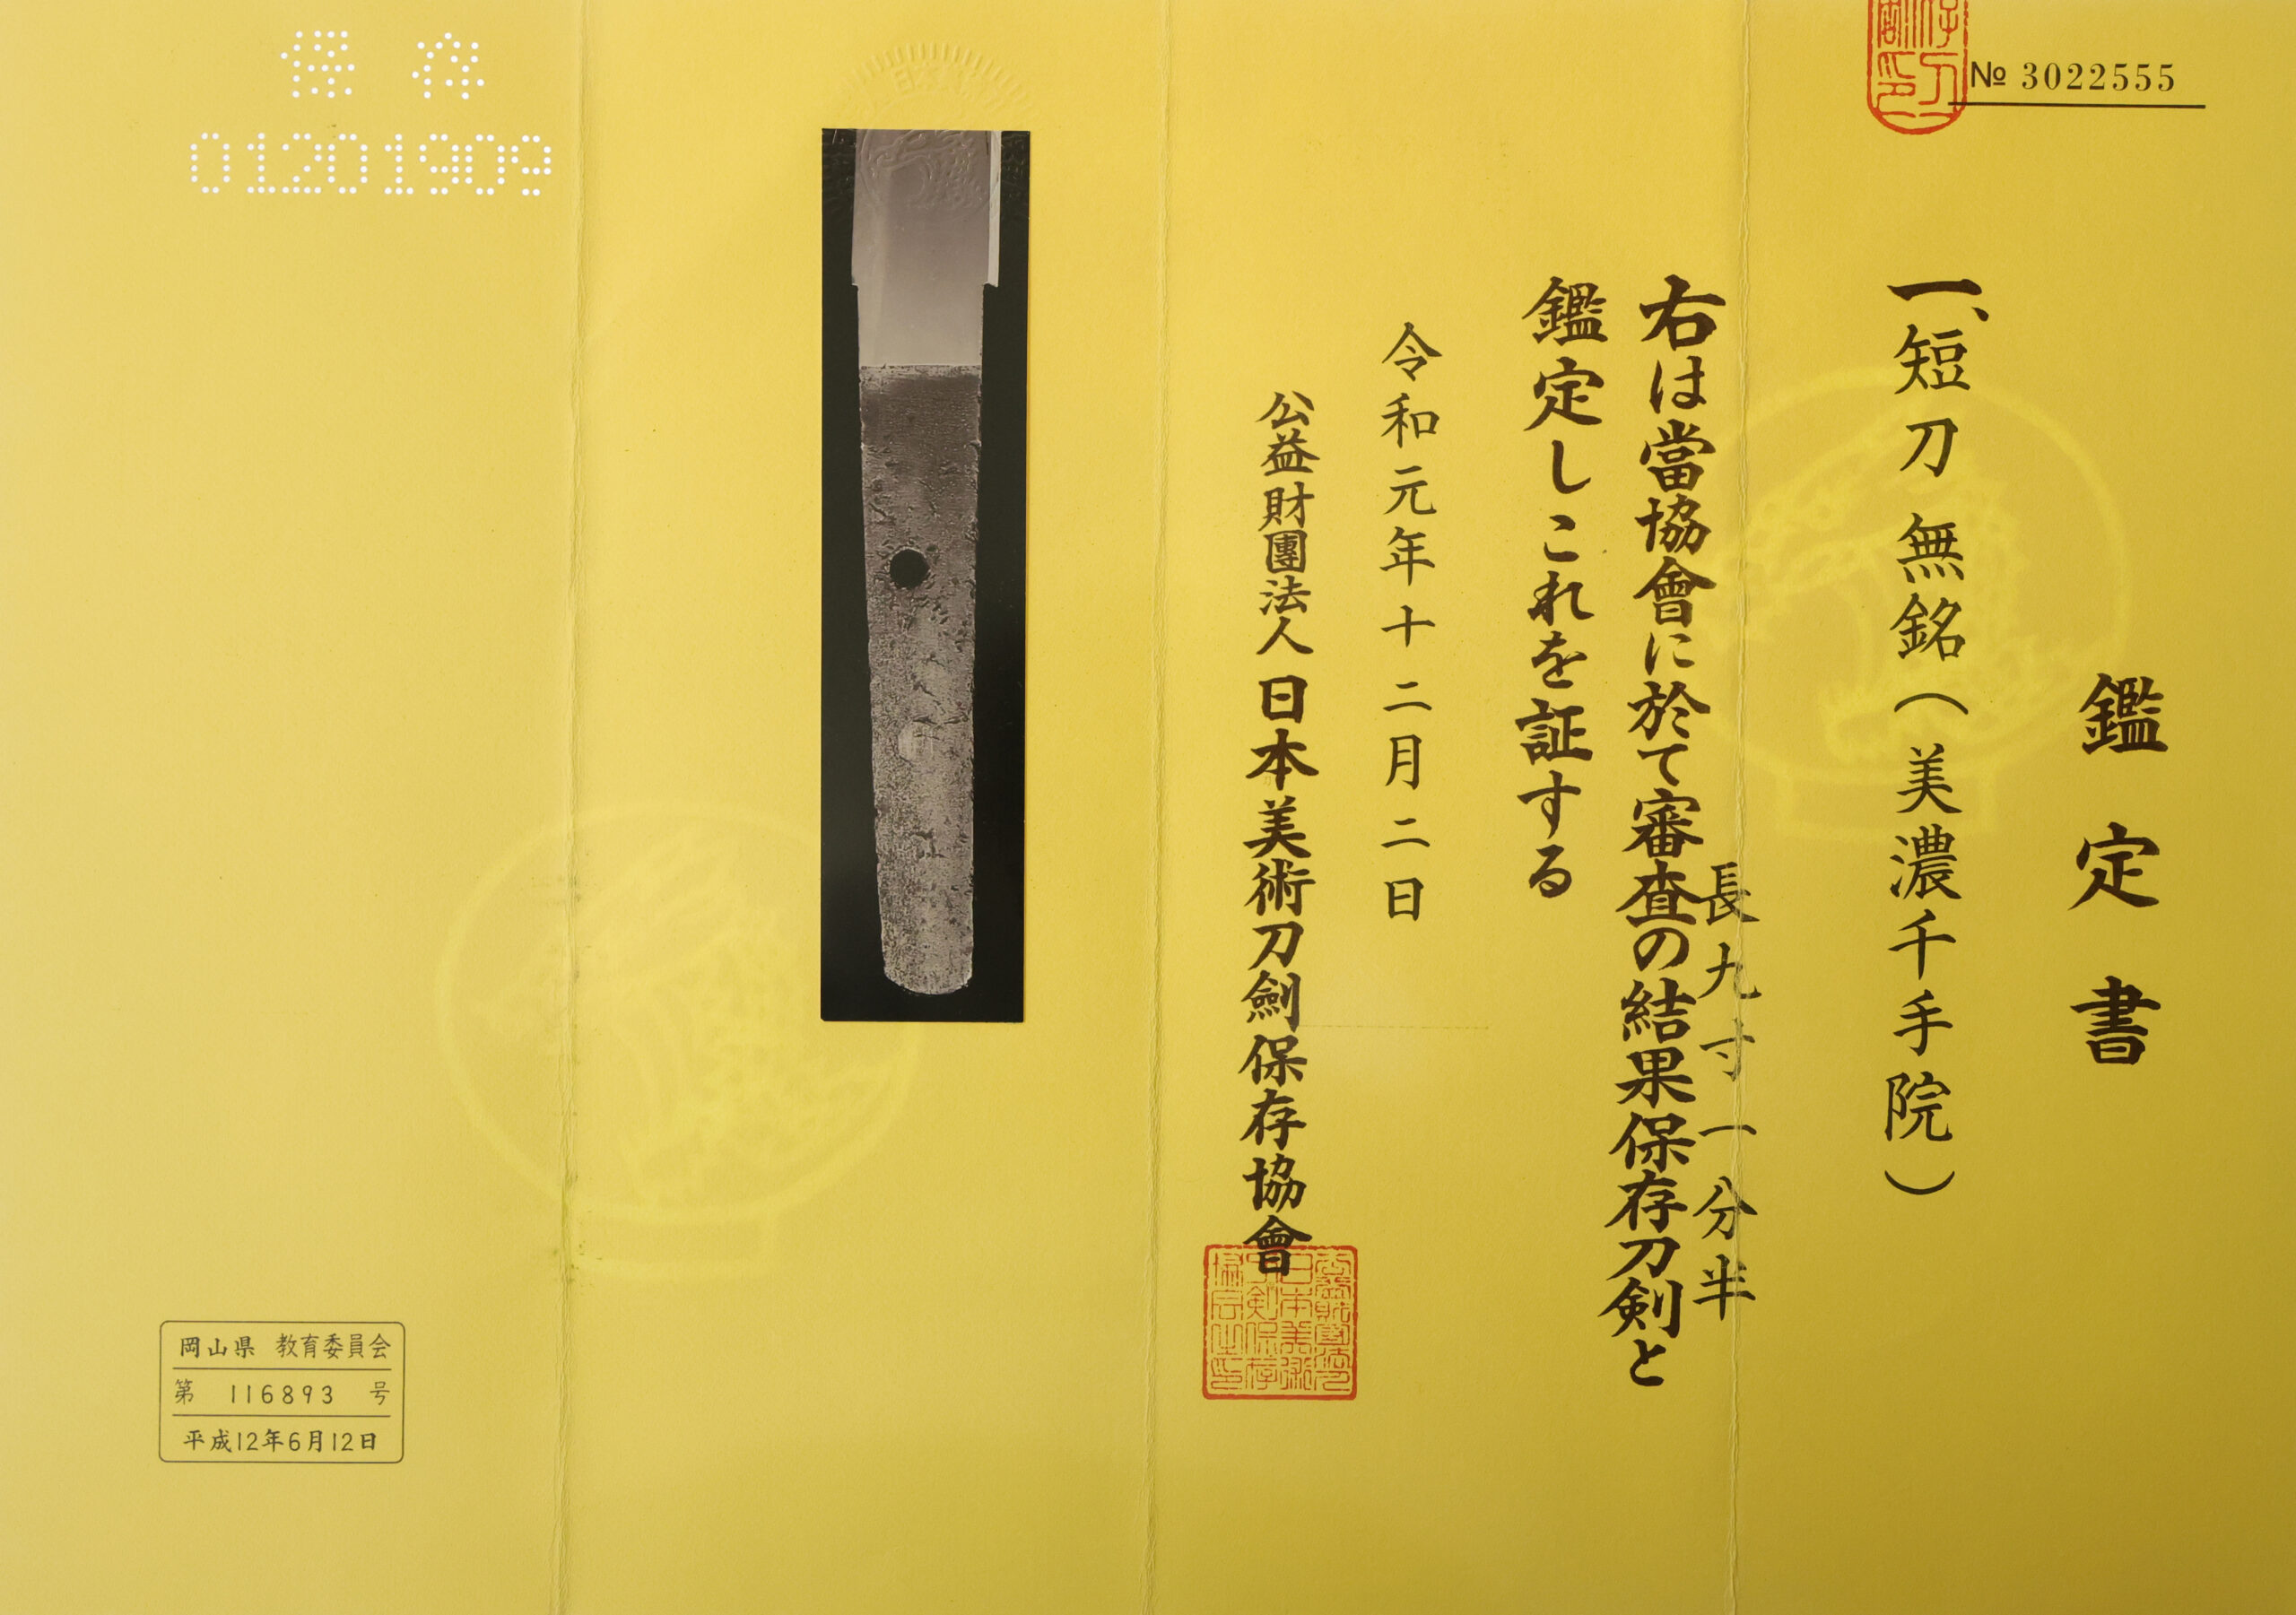 № 3022555
鑑定書
一、短刀 無銘(美濃千手院)
長九寸一分半
右は當協會に於て審査の結果保存刀剣と
鑑定しこれを証する
令和元年十二月二日
公益財團法人 日本美術刀劍保存協會
保存
01201909
岡山県 教育委員会
第 116893 号
平成12年6月12日